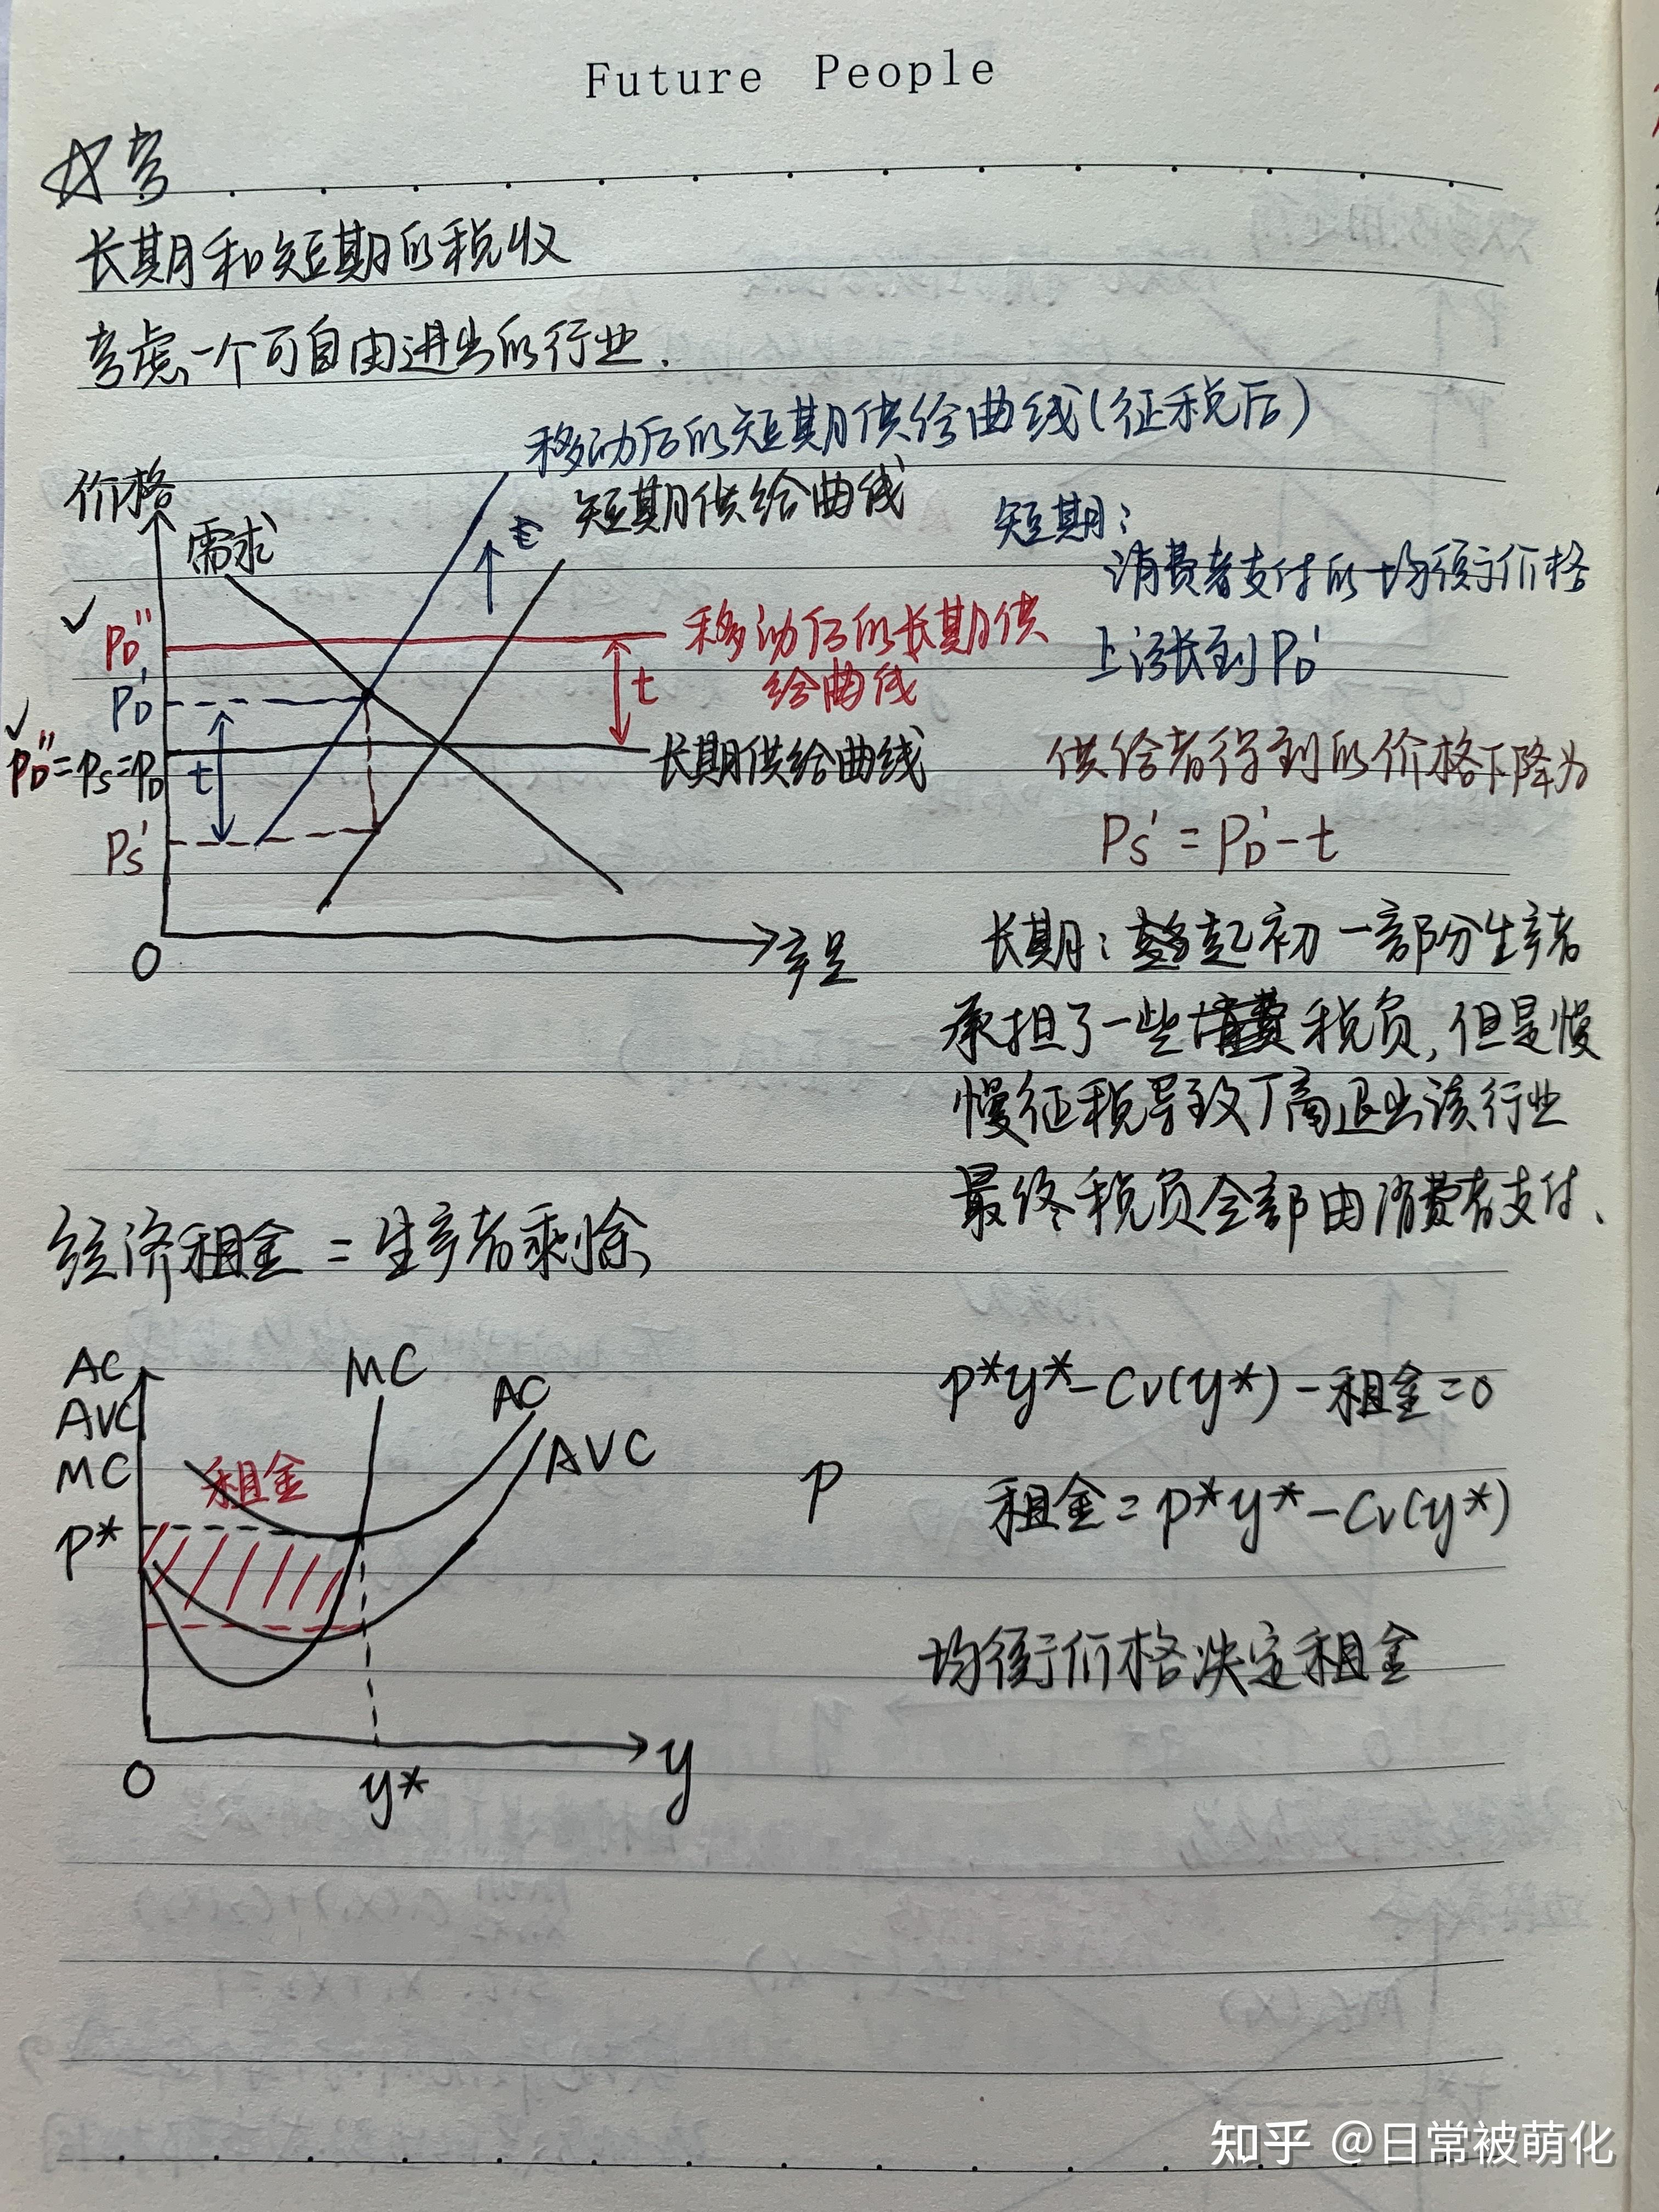 Future People
☆考
长期和短期的税收
考虑一个可自由进出的行业.
移动后的短期供给曲线(征税后)
短期供给曲线
价格
需求
t
短期:
消费者支付的均衡价格
上涨到PD'
PD''
移动后的长期供
给曲线
t
PD'
PD''=PS=PD
t
长期供给曲线
供给者得到的价格下降为
PS'=PD'-t
PS'
0
产量
长期:起初一部分生产者
承担了一些税负,但是慢
慢征税导致厂商退出该行业
最终税负全部由消费者支付.
经济租金=生产者剩余
AC
AVC
MC
MC
AC
AVC
租金
P*
0
y*
y
P*y*-Cv(y*)-租金=0
P
租金=P*y*-Cv(y*)
均衡价格决定租金
知乎 @日常被萌化